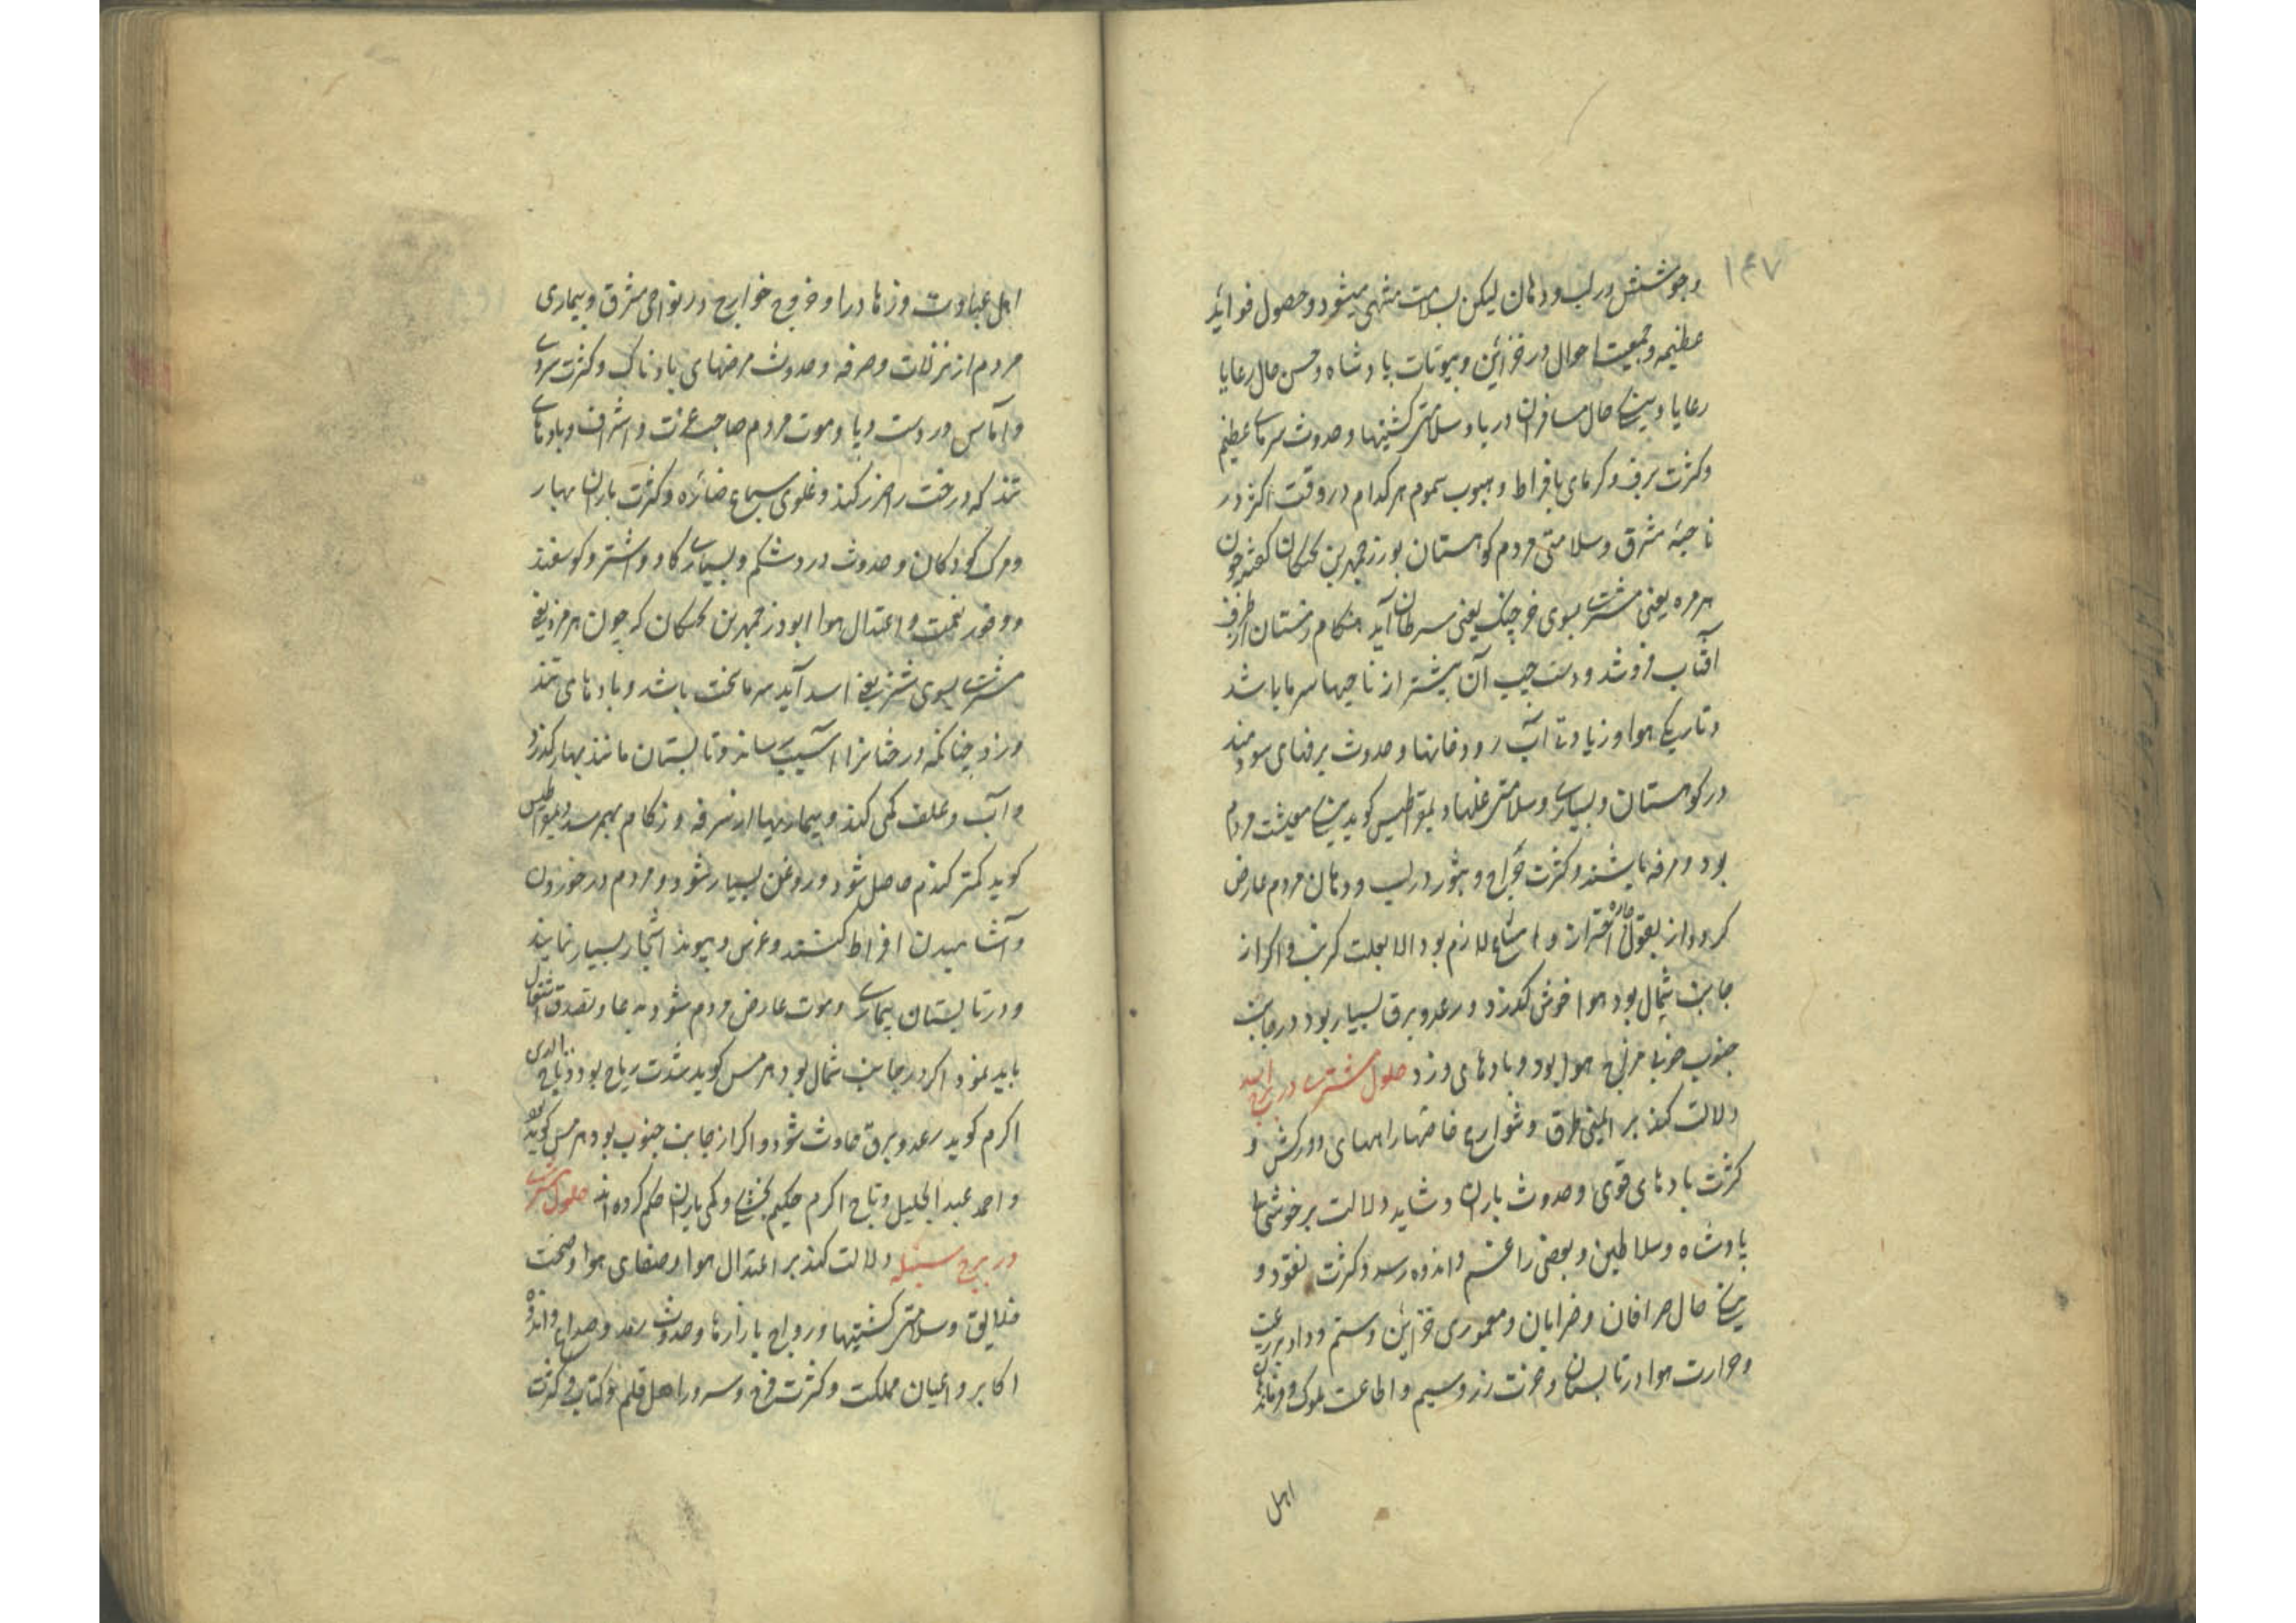 ۱۴۷
وجوشش در لب و دهان لیکن بسلامت منتهی میشود و حصول فوائد
عظیمه و جمعیت احوال در خزائن و بیوتات پادشاه و حسن حال رعایا
رعایا و نیکی حال مسافران دریا و سلامتی کشتیها و حدوث سرمای عظیم
وکثرت برف و گرمای بافراط و هبوب سموم هر کدام در وقت اکثر در
ناحیه مشرق و سلامتی مردم کوهستان بوزرجمهر بن بختگان گفته چون
هرمز یعنی مشتری بسوی خرچنگ یعنی سرطان آید هنگام زمستان از طرف
آفتاب فروشد و دست چپ آن بیشتر از ناحیها سرما باشد
وتاریکی هوا و زیادتی آب رودخانها و حدوث برفهای سودمند
در کوهستان و بسیاری و سلامتی غلها و یمقراطیس کوید نیکی معیشت مردم
بود و مرفه باشند و کثرت جراح و بثور در لب و دهان مردم عارض
کردد از بقول حاره احتراز و امتناع لازم بود الا بعلت کرنب و اکر از
جانب شمال بود هوا خوش کذرد و رعد و برق بسیار بود در جانب
جنوب خوبی مزاج هوا بود و بادهای وزد حلول مشتری در برج اسد
دلالت کند بر ایمنی طرق و شوارع خاصه راههای دورکش و
کثرت بادهای قوی و حدوث باران و شاید دلالت بر خوشی
پادشاه و سلاطین و بعضی را غم و اندوه رسد و کثرت نقود و
نیکی حال صرافان و ضرابان و معموری خزائن و ستم و داد بر رعیت
وحرارت هوا در تابستان و عزت زر و سیم و اطاعت ملوک و فرمان
اهل
اهل عبادت و زهاد را و خروج خوارج در نواحی مشرق و بیماری
مردم از نزلات و سرفه و حدوث مرضهای بادناک و کثرت سردی
و آماس در دست و پا و موت مردم صاحب عزت و اشراف و بادهای
تند که درخت را ضرر کند و غلوی سباع ضائره و کثرت باران بهار
ومرک کودکان و حدوث درد شکم و بسیاری کاو و اشتر و کوسفند
و وفور نعمت و اعتدال هوا ابوذرجمهر بن بختکان که چون هرمز یعنی
مشتری بسوی شیر یعنی اسد آید سرما سخت باشد و بادهای تند
ورزد چنانکه درختانرا آسیب رساند و تابستان مانند بهار کذرد
و آب و علف کمی کند و بیماریها از سرفه و زکام بهم رسد
کوید کمتر کندم حاصل شود و روغن بسیار شود و مردم در خوردن
و آشامیدن افراط کنند و غرس و پیوند اشجار بسیار نمایند
و در تابستان بیماری و موت عارض مردم شود بدعا و تصدق اشتغال
باید نمود اکر در جانب شمال بود هرمس کوید شدت ریاح بود و تاج الدین
اکرم کوید رعد و برق حادث شود و اکر از جانب جنوب بود هرمس کوید
و احمد عبدالجلیل و تاج اکرم حکیم بخشکی و کمی باران حکم کرده اند حلول مشتری
در برج سنبله دلالت کند بر اعتدال هوا و صفای هوا و صحت
خلایق و سلامتی کشتیها و رواج بازارها و حدوث رعد و صداع و اندوه
اکابر و اعیان مملکت و کثرت فرح و سرور اهل قلم و کتاب و کثرت